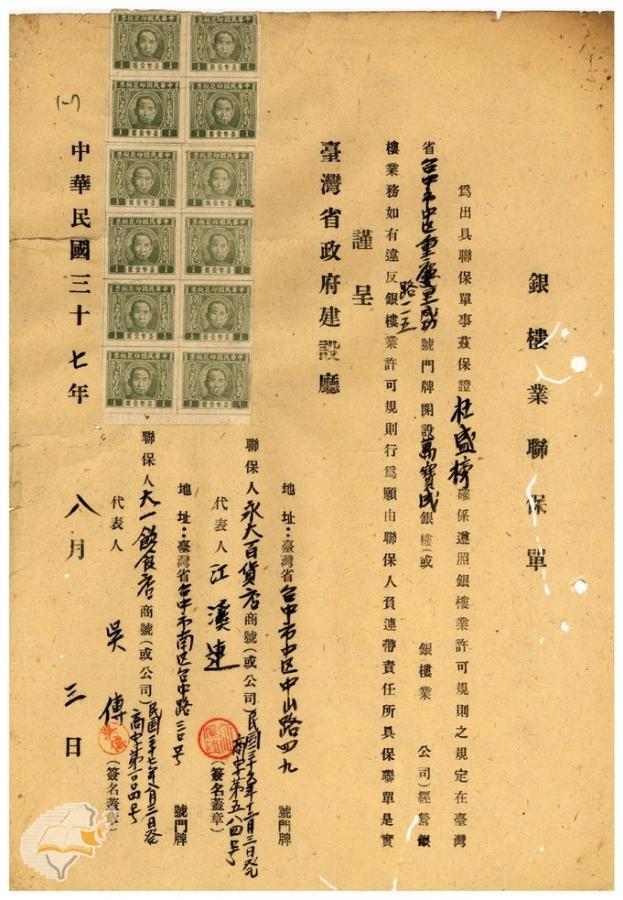 銀樓業聯保單
爲出具聯保單事茲保證杜盛榜確係遵照銀樓業許可規則之規定在臺灣
省台中市中区重慶里成功路一二五號門牌開設萬寶成銀樓(或 銀樓業 公司)經營銀
樓業務如有違反銀樓業許可規則行爲願由聯保人負連帶責任所具保聯單是實
謹呈
臺灣省政府建設廳
地址:臺灣省台中市中区中山路四九 號門牌
聯保人永大百貨店商號(或公司)民國三十五年十二月三日発商中第五八四号
代表人 江溪連 (簽名蓋章)
地址:臺灣省台中市南区台中路三〇号 號門牌
聯保人大一飲食店商號(或公司)民國三十七年八月二日発
代表人 吳傳 (簽名蓋章)
中華民國三十七年八月三日
1-7
中華民國印花稅票
臺幣壹圓
1 1